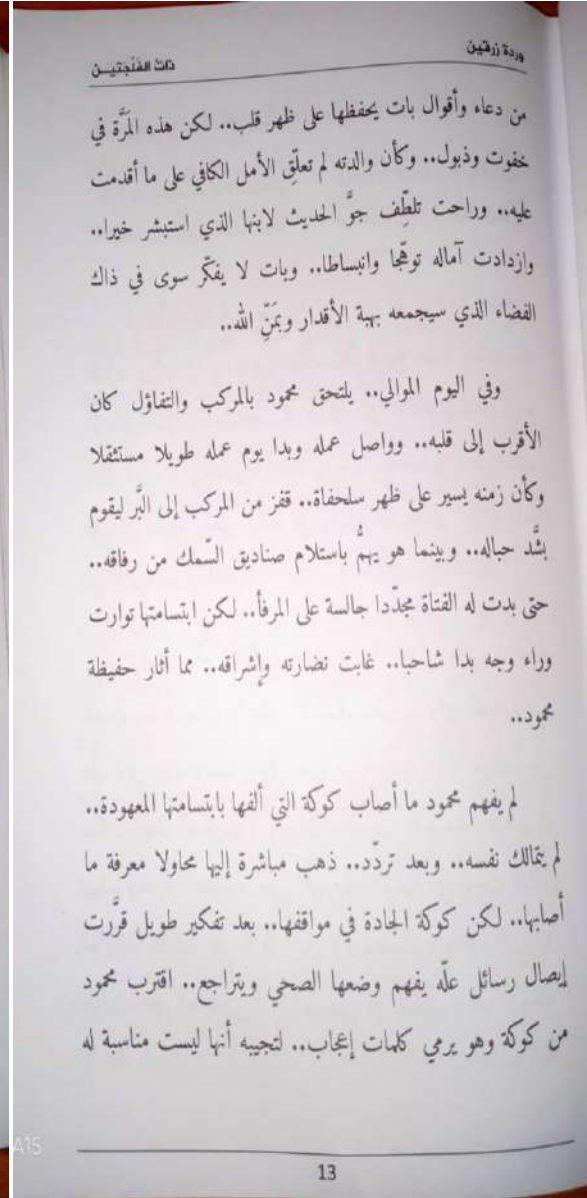 وردة زرقين
ذات الفلجتيـن
من دعاء وأقوال بات يحفظها على ظهر قلب.. لكن هذه المَرَّة في
خفوت وذبول.. وكأن والدته لم تعلِّق الأمل الكافي على ما أقدمت
عليه.. وراحت تلطِّف جوَّ الحديث لابنها الذي استبشر خيرا..
وازدادت آماله توهّجا وانبساطا.. وبات لا يفكّر سوى في ذاك
الفضاء الذي سيجمعه بهبة الأقدار وبمَنِّ الله..
وفي اليوم الموالي.. يلتحق محمود بالمركب والتفاؤل كان
الأقرب إلى قلبه.. وواصل عمله وبدا يوم عمله طويلا مستثقلا
وكأن زمنه يسير على ظهر سلحفاة.. قفز من المركب إلى البَّر ليقوم
بشَّد حباله.. وبينما هو يهمُّ باستلام صناديق السّمك من رفاقه..
حتى بدت له الفتاة مجدّدا جالسة على المرفأ.. لكن ابتسامتها توارت
وراء وجه بدا شاحبا.. غابت نضارته وإشراقه.. مما أثار حفيظة
محمود..
لم يفهم محمود ما أصاب كوكة التي ألفها بابتسامتها المعهودة..
لم يتمالك نفسه.. وبعد تردّد.. ذهب مباشرة إليها محاولا معرفة ما
أصابها.. لكن كوكة الجادة في مواقفها.. بعد تفكير طويل قرَّرت
إيصال رسائل علّه يفهم وضعها الصحي ويتراجع.. اقترب محمود
من كوكة وهو يرمي كلمات إعجاب.. لتجيبه أنها ليست مناسبة له
A15
13